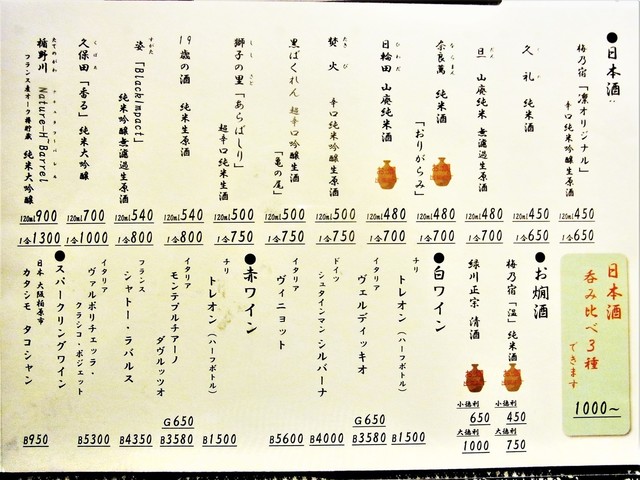 ●日本酒
梅乃宿「凛オリジナル」
辛口純米吟醸生原酒
120ml 450
1合650
久礼 純米酒
く れ
120ml 450
1合650
旦 山廃純米 無濾過生原酒
だん
120ml 480
1合700
奈良萬 純米酒
ならまん
「おりがらみ」
120ml 480
1合700
日輪田 山廃純米酒
ひわた
120ml 480
1合700
焚火 辛口純米吟醸酒
たきび
120ml 500
1合750
黒ばくれん 超辛口吟醸生酒
「亀の尾」
120ml 500
1合750
獅子の里「あらばしり」
超辛口純米生酒
120ml 500
1合750
19歳の酒 純米生原酒
120ml 540
1合800
姿「Black Impact」
すがた
純米吟醸無濾過生原酒
120ml 540
1合800
久保田「香る」純米大吟醸
くぼた
120ml 700
1合1000
楯野川 Nature-H Barrel
たてのがわ
フランス産オーク樽貯蔵 純米大吟醸
120ml 900
1合1300
日本酒
呑み比べ3種
できます
1000~
●お燗酒
梅乃宿「温」純米酒
小徳利
450
大徳利
750
緑川正宗 清酒
小徳利
650
大徳利
1000
●白ワイン
チリ
トレオン(ハーフボトル)
B1500
イタリア
ヴェルディッキオ
G650
B3580
ドイツ
シュタインマン シルバーナ
B4000
イタリア
ヴィニョット
B5600
●赤ワイン
チリ
トレオン(ハーフボトル)
B1500
イタリア
モンテプルチアーノ
ダヴルッツオ
G650
B3580
フランス
シャトー・ラバルス
B4350
イタリア
ヴァルポリチェッラ・
クラシコ・ボジェット
B5300
●スパークリングワイン
日本 大阪柏原市
カタシモ タコシャン
B950